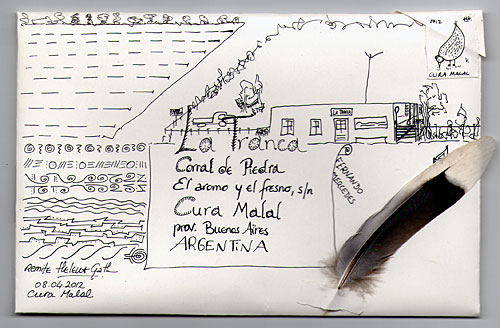 2012
CURA MALAL
LA TRANCA
La Tranca
Corral de Piedra
El aromo y el fresno, s/n
Cura Malal
prov. Buenos Aires
ARGENTINA
FERNANDO
MERCEDES
Remite Helmut
08.04.2012
Cura Malal